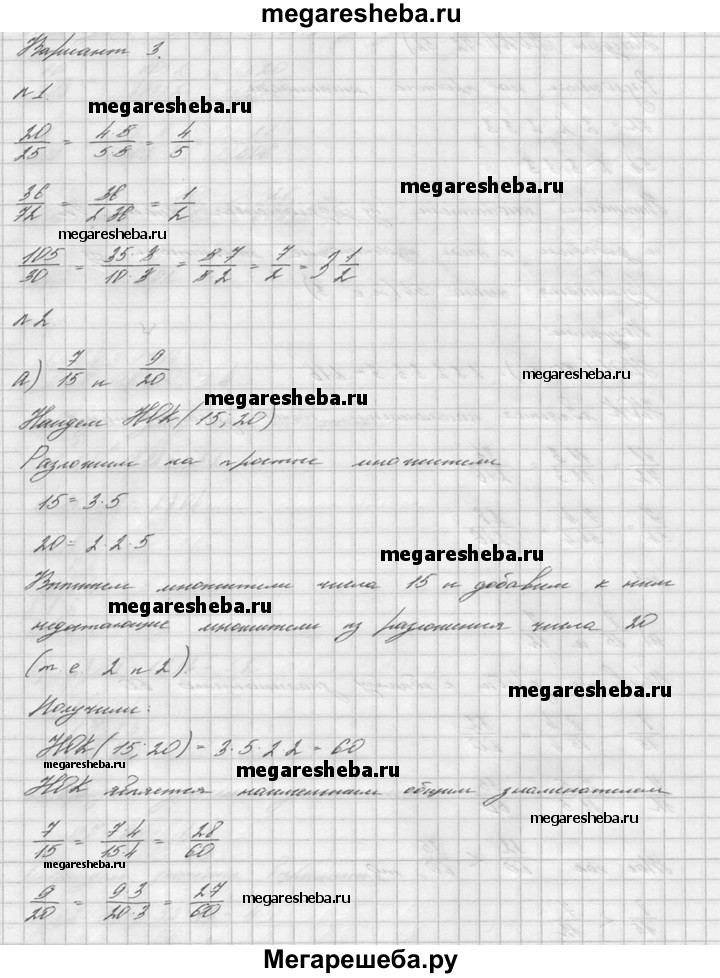 megaresheba.ru
Вариант 3.
№1.
megaresheba.ru
20/25 = 4·5/5·5 = 4/5
megaresheba.ru
36/72 = 36/2·36 = 1/2
megaresheba.ru
105/30 = 35·3/10·3 = 5·7/5·2 = 7/2 = 3 1/2
№2
а) 7/15 и 9/20
megaresheba.ru
megaresheba.ru
Найдем НОК(15; 20)
Разложим на простые множители
15 = 3·5
20 = 2·2·5
megaresheba.ru
Выпишем множители числа 15 и добавим к ним
megaresheba.ru
недостающие множители из разложения числа 20
(т.е. 2 и 2).
megaresheba.ru
Получили:
НОК(15; 20) = 3·5·2·2 = 60
megaresheba.ru
НОК является наименьшим общим знаменателем
megaresheba.ru
7/15 = 7·4/15·4 = 28/60
megaresheba.ru
9/20 = 9·3/20·3 = 27/60
megaresheba.ru
Мегарешеба.ру